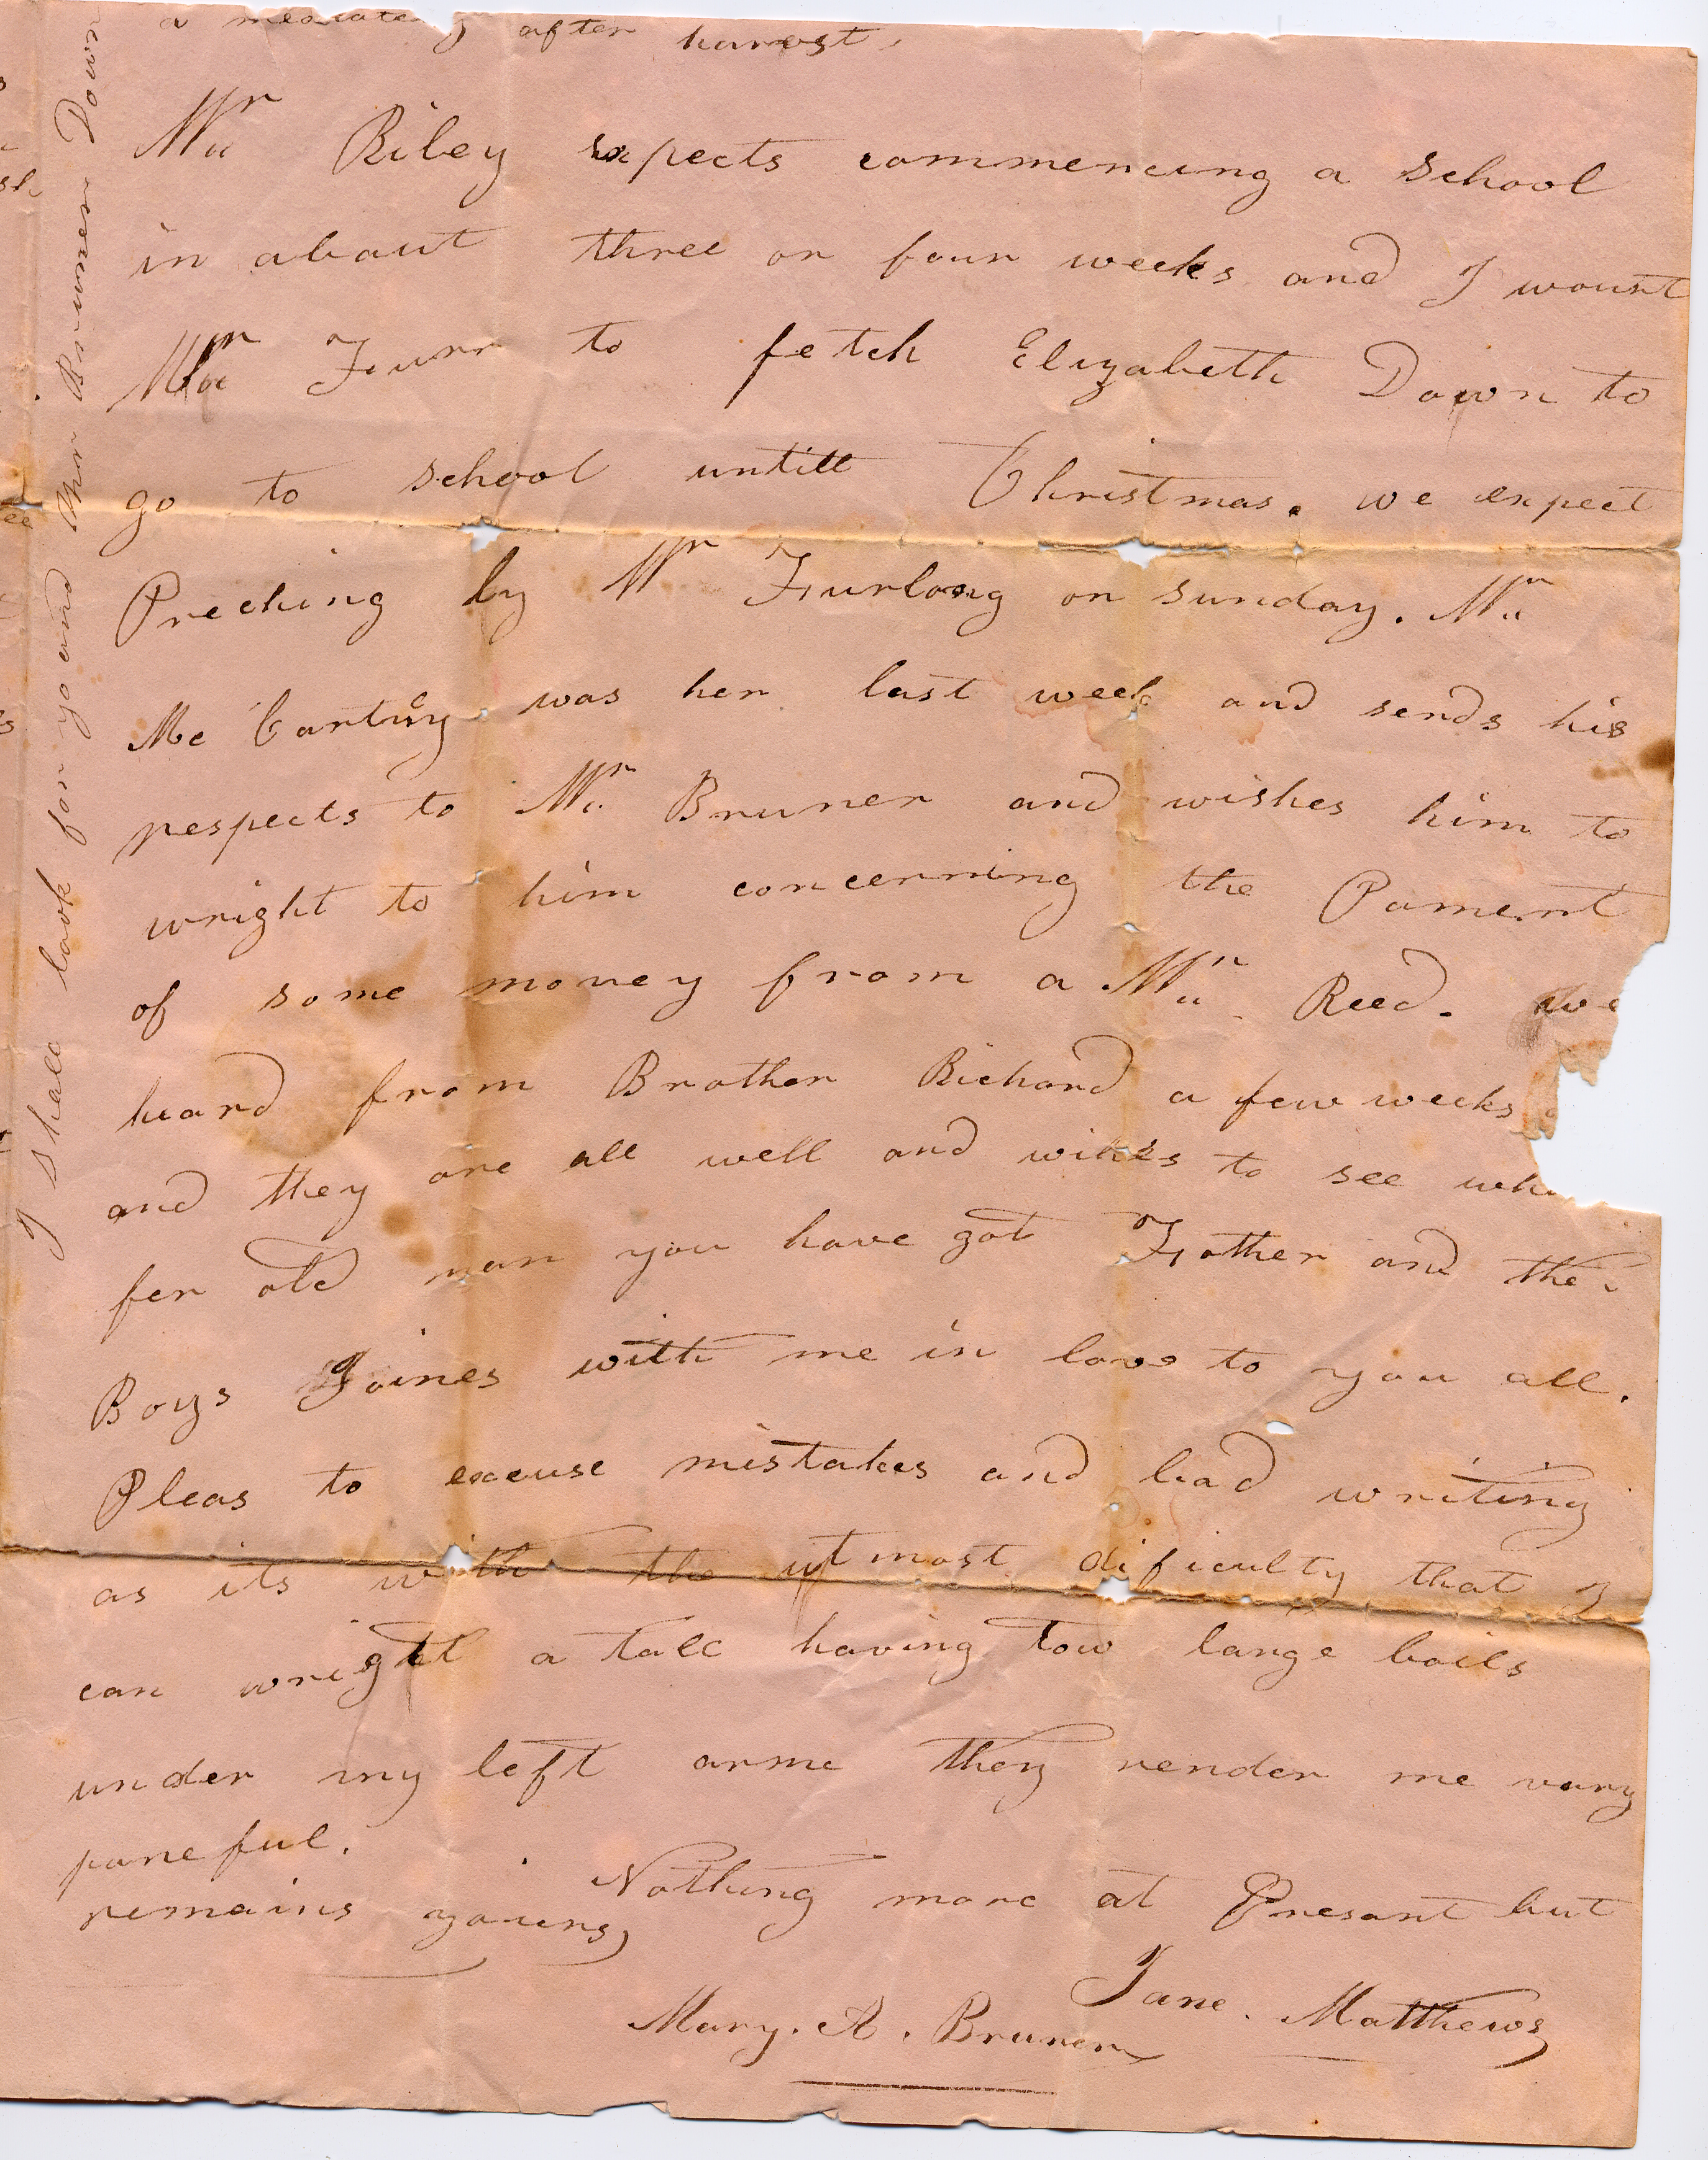 after harvest,
Mr Riley expects commencing a school
in about three or four weeks and I wount
Mr Furr to fetch Elizabeth Down to
go to school untill Christmas. we expect
Preching by Mr Furlong on sunday. Mr
Mc Cartny was her last week and sends his
respects to Mr Bruner and wishes him to
wright to him concerning the Pament
of some money from a Mr Reed. we
heard from Brother Richard a few weeks
and they are all well and wihes to see
fer old man you have got Father and the
Boys Joines with me in love to you all.
Pleas to excuse mistakes and bad writing
as its with the utmost dificulty that I
can wright a tall having tow large boils
under my left arme they render me vary
paneful.
Nothing more at Presant but
remains youers,
Jane. Matthews
Mary. A. Bruner
I Shall look for yo and Mr Brunner Down